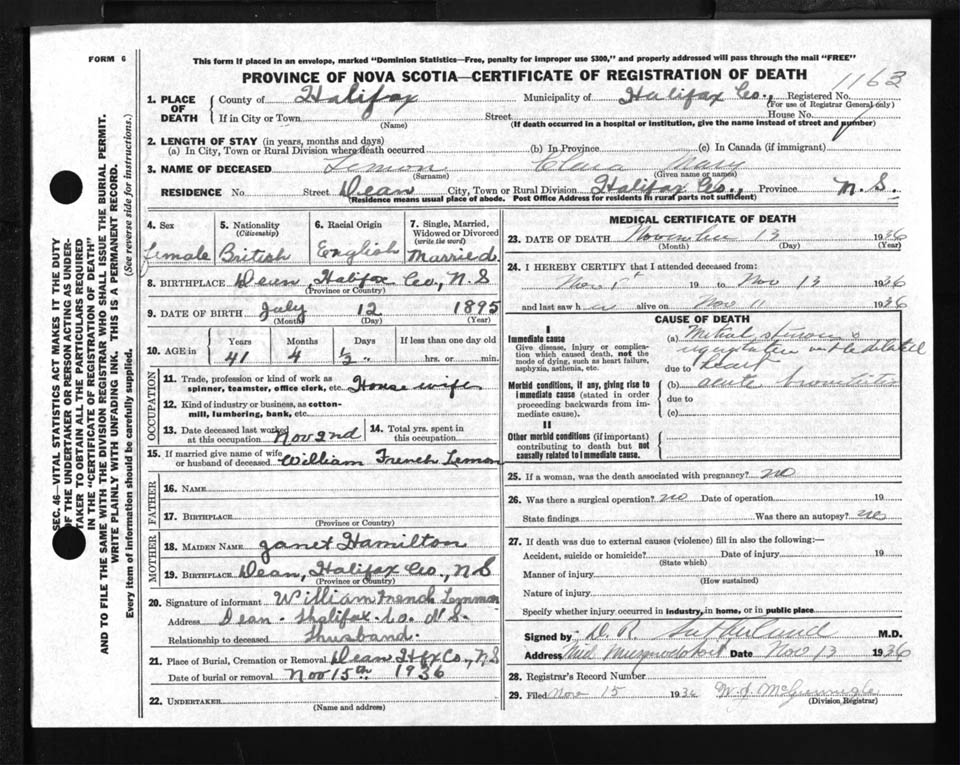 FORM 6
This form if placed in an envelope, marked "Dominion Statistics—Free, penalty for improper use $300," and properly addressed will pass through the mail "FREE"
PROVINCE OF NOVA SCOTIA—CERTIFICATE OF REGISTRATION OF DEATH
1163
1. PLACE OF DEATH
County of Halifax Municipality of Halifax Co., Registered No.
(For use of Registrar General only)
If in City or Town Street House No.
(Name) (If death occurred in a hospital or institution, give the name instead of street and number)
2. LENGTH OF STAY (in years, months and days)
(a) In City, Town or Rural Division where death occurred (b) In Province (c) In Canada (if immigrant)
3. NAME OF DECEASED Lemon Clara Mary
(Surname) (Given name or names)
RESIDENCE No. Street Dean City, Town or Rural Division Halifax Co., Province N.S.
(Residence means usual place of abode. Post Office Address for residents in rural parts not sufficient)
4. Sex
female
5. Nationality
(Citizenship)
British
6. Racial Origin
English
7. Single, Married, Widowed or Divorced
(write the word)
Married
8. BIRTHPLACE Dean, Halifax Co., N.S
(Province or Country)
9. DATE OF BIRTH July 12 1895
(Month) (Day) (Year)
10. AGE in
Years Months Days If less than one day old
41 4 ½ " hrs. or min.
OCCUPATION
11. Trade, profession or kind of work as spinner, teamster, office clerk, etc. House wife
12. Kind of industry or business, as cotton-mill, lumbering, bank, etc.
13. Date deceased last worked at this occupation Nov 2nd
14. Total yrs. spent in this occupation
15. If married give name of wife or husband of deceased William French Lemon
FATHER
16. NAME
17. BIRTHPLACE
(Province or Country)
MOTHER
18. MAIDEN NAME Janet Hamilton
19. BIRTHPLACE Dean, Halifax Co., N S
(Province or Country)
20. Signature of informant William French Lemmon
Address Dean - Halifax Co. N S.
Relationship to deceased Husband.
21. Place of Burial, Cremation or Removal Dean Hfx Co., N S
Date of burial or removal Nov 15th 1936
22. UNDERTAKER
(Name and address)
MEDICAL CERTIFICATE OF DEATH
23. DATE OF DEATH November 13 1936
(Month) (Day) (Year)
24. I HEREBY CERTIFY that I attended deceased from:
Nov 19 to Nov 13 1936
and last saw h alive on Nov 11 1936
CAUSE OF DEATH
I
Immediate cause
Give disease, injury or complication which caused death, not the mode of dying, such as heart failure, asphyxia, asthenia, etc.
(a) Mitral stenosis &
regurgitation with dilated
due to heart
Morbid conditions, if any, giving rise to immediate cause (stated in order proceeding backwards from immediate cause).
(b) acute bronchitis
due to
(c)
II
Other morbid conditions (if important) contributing to death but not causally related to immediate cause.
25. If a woman, was the death associated with pregnancy? no
26. Was there a surgical operation? no Date of operation 19
State findings Was there an autopsy? no
27. If death was due to external causes (violence) fill in also the following:—
Accident, suicide or homicide? Date of injury 19
(State which)
Manner of injury
(How sustained)
Nature of injury
Specify whether injury occurred in industry, in home, or in public place
Signed by D. R. Sutherland M.D.
Address Mid Musquodoboit Date Nov 13 1936
28. Registrar's Record Number
29. Filed Nov 15 1936
(Division Registrar)
SEC. 46—VITAL STATISTICS ACT MAKES IT THE DUTY
OF THE UNDERTAKER OR PERSON ACTING AS UNDER-
TAKER TO OBTAIN ALL THE PARTICULARS REQUIRED
IN THE "CERTIFICATE OF REGISTRATION OF DEATH"
AND TO FILE THE SAME WITH THE DIVISION REGISTRAR WHO SHALL ISSUE THE BURIAL PERMIT.
WRITE PLAINLY WITH UNFADING INK. THIS IS A PERMANENT RECORD.
Every item of information should be carefully supplied. (See reverse side for instructions.)